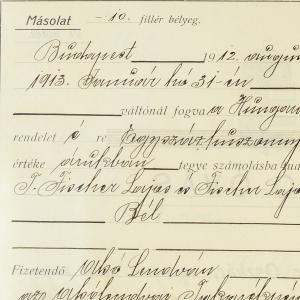 Másolat -10. fillér bélyeg.
Budapest 1912. augus
1913. Január hó 31-én
váltónál fogva a Hungar
rendelet é re Egyszázhuszonny
értéke árukban tegye számolásba
T. Fischer Lajos és Fischer Laj
Bél
Fizetendő Alsó Lendván
az Alsólendvai Takarék